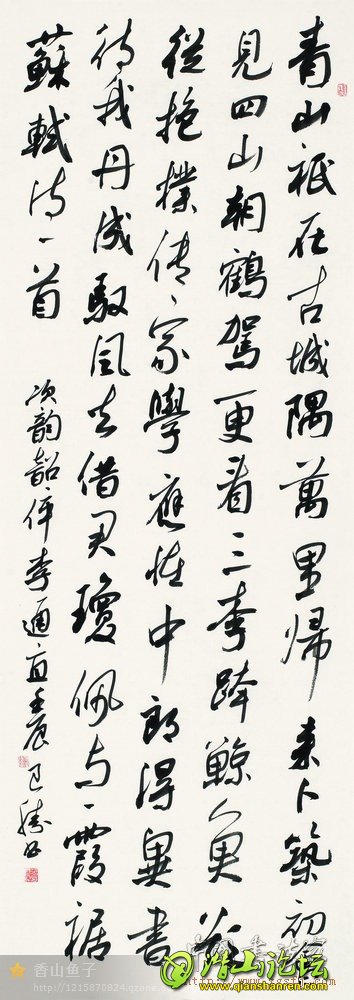 青山祇在古城隅萬里歸來卜築初會
見四山朝鶴駕更看三李跨鯨魚欲
從抱樸傳家學應怪中郎得異書
待我丹成馭風去借君瓊佩與霞裾
蘇軾詩一首
次韵韶倅李通直壬辰
香山鱼子
http://1215870824.qzone
潜山论坛
www.qianshanren.com